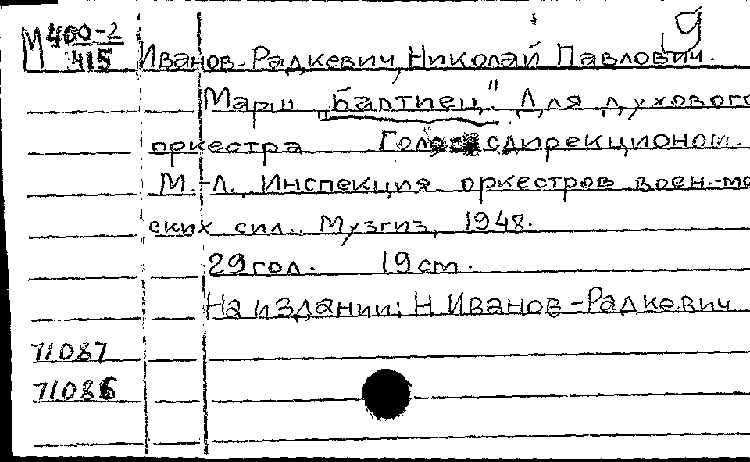 9
М 400-2
415
Иванов-Радкевич, Николай Павлович.
Марш „Балтиец". Для духового
оркестра Голоса с дирекционом.
М.-Л., Инспекция оркестров воен.-мо
ских сил. Музгиз, 1948.
29 гол. 19 см.
На издании: Н Иванов-Радкевич
71087
71086